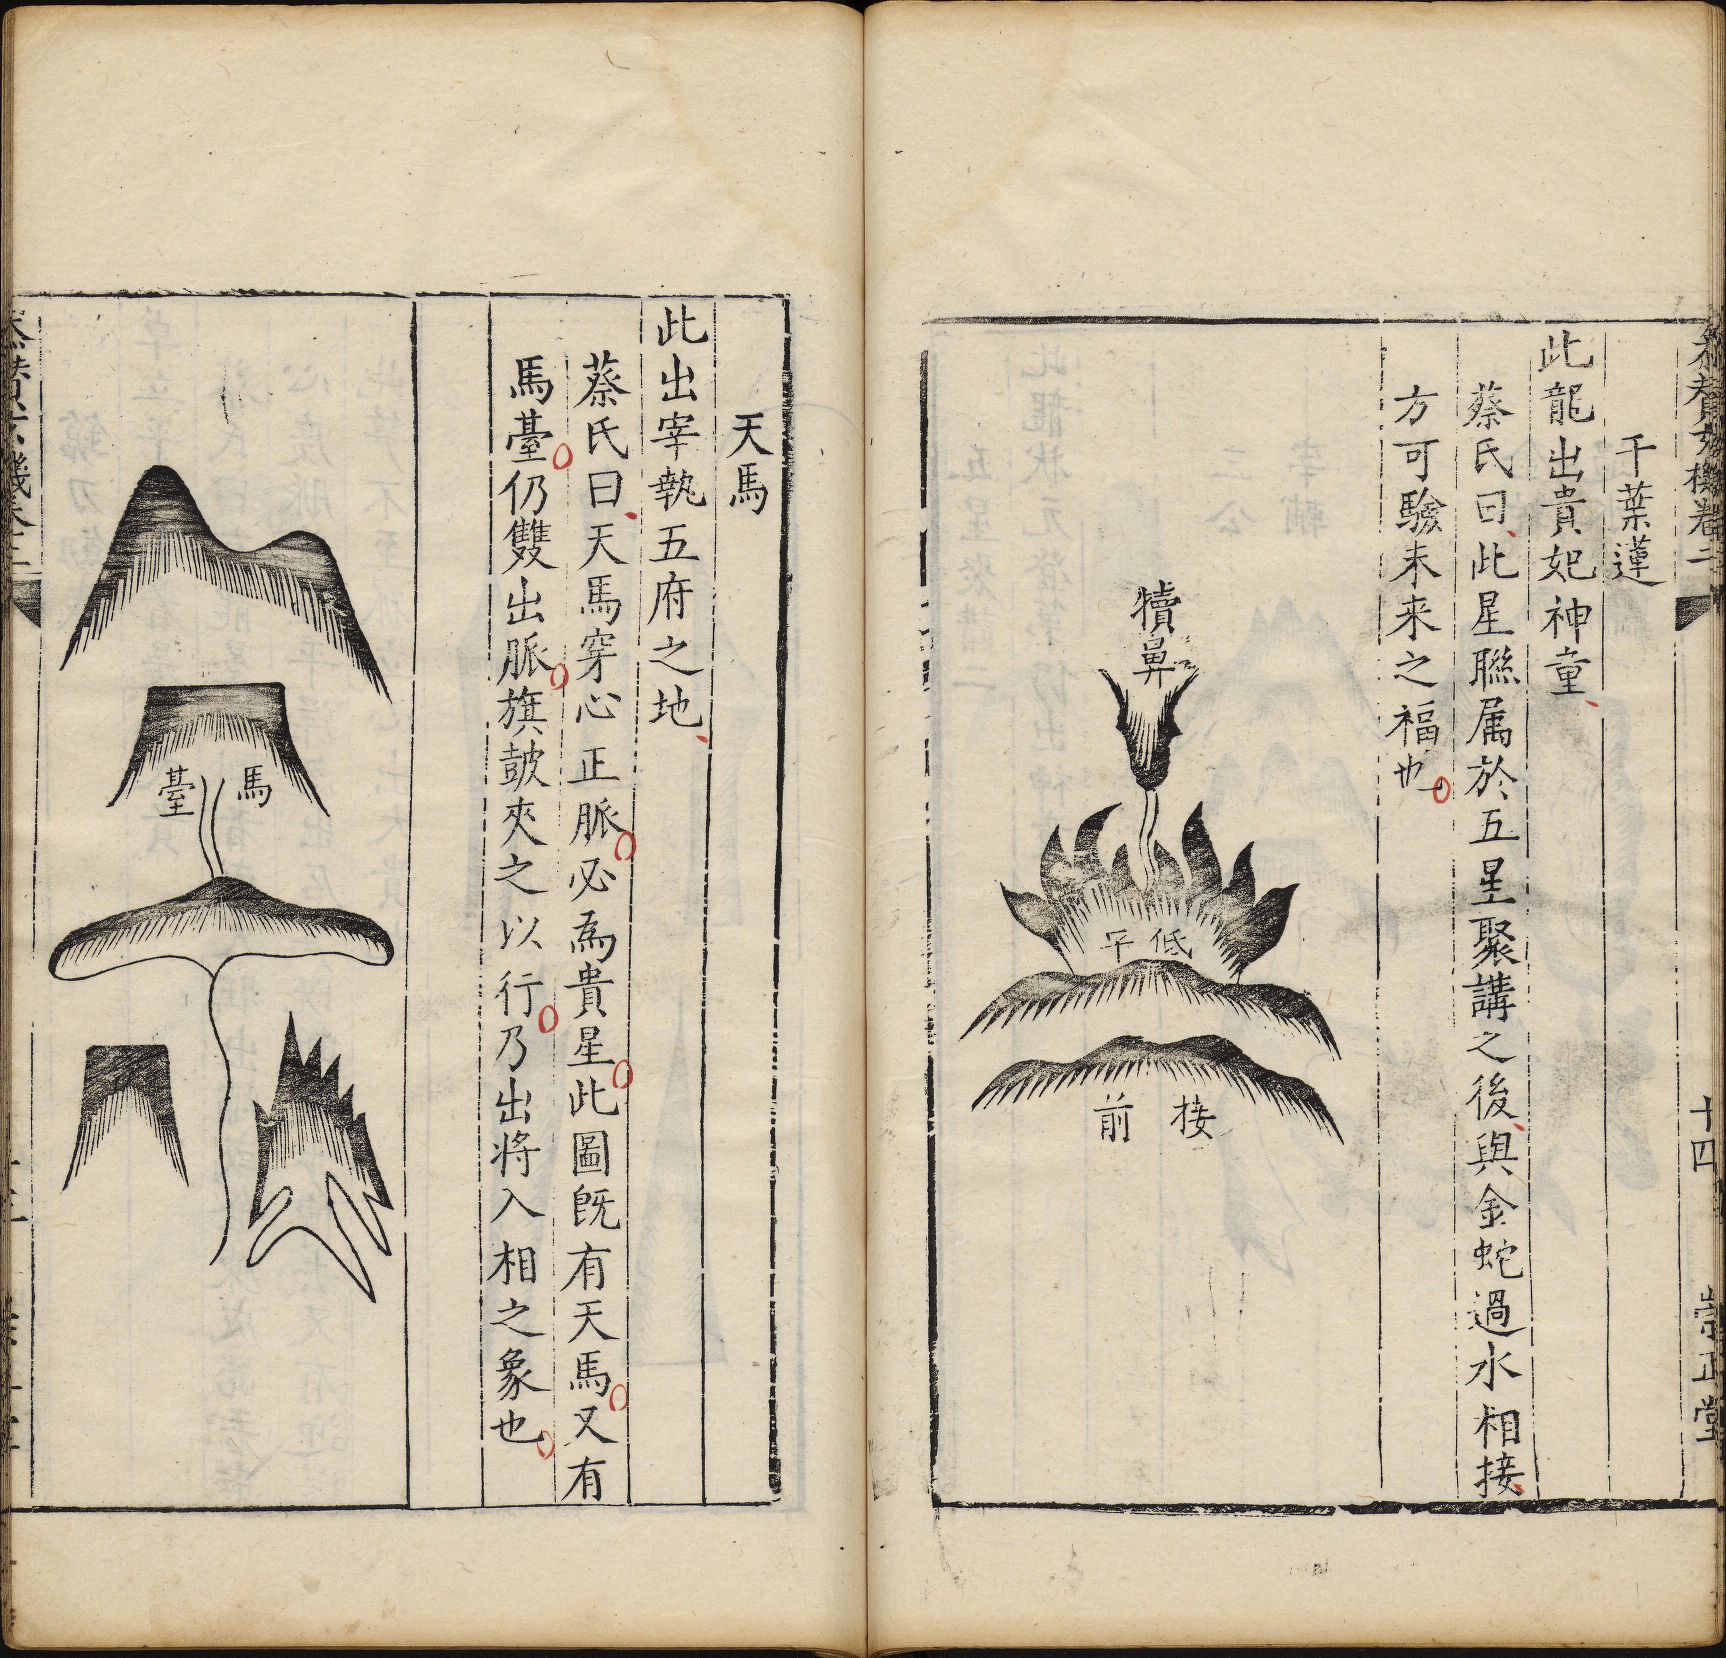 參贊玄機卷二
十四
崇正堂
千葉蓮
此龍出貴妃神童
蔡氏曰此星聯属於五星聚講之後與金蛇過水相接
方可驗未来之福也
犢鼻
低平
接前
天馬
此出宰執五府之地
蔡氏曰天馬穿心正脈必為貴星此圖旣有天馬又有
馬臺仍雙出脈旗皷夾之以行乃出将入相之象也
馬臺